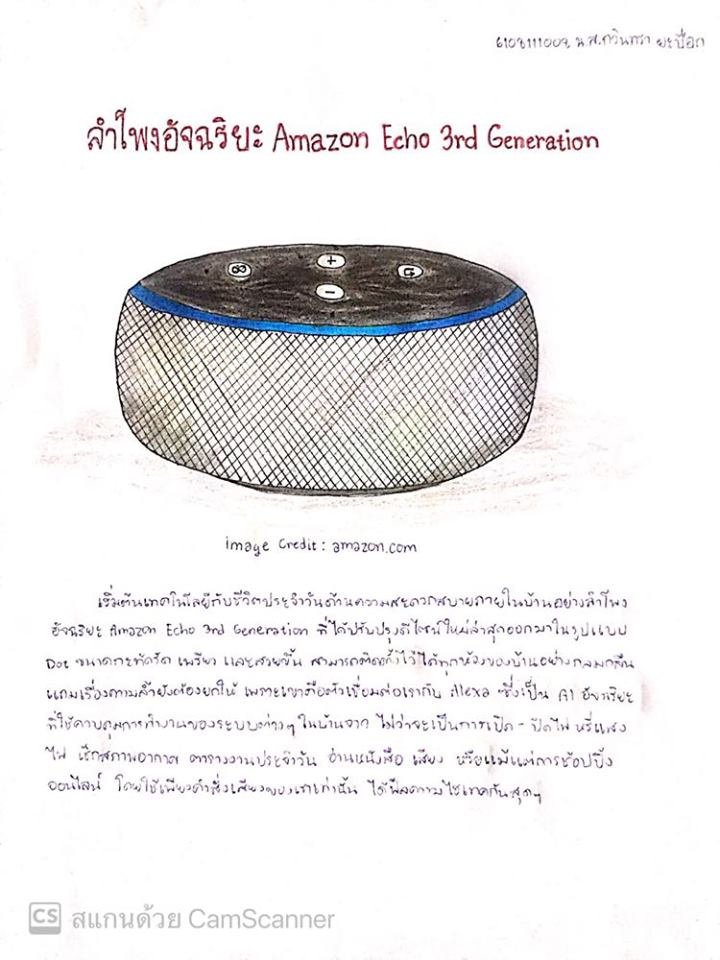 6108111008 น.ส.กวินทรา ยะป๊อก
ลำโพงอัจฉริยะ Amazon Echo 3rd Generation
+
-
image Credit : amazon.com
เริ่มต้นเทคโนโลยีกับชีวิตประจำวันด้านความสะดวกสบายภายในบ้านอย่างลำโพง
อัจฉริยะ Amazon Echo 3rd Generation ที่ได้ปรับปรุงดีไซน์ใหม่ล่าสุดออกมาในรูปแบบ
Dot ขนาดกะทัดรัด เพรียว และสวยขึ้น สามารถติดตั้งไว้ได้ทุกห้องของบ้านอย่างกลมกลืน
แถมเรื่องความล้ำยังต้องยกให้ เพราะเขาคือตัวเชื่อมต่อเรากับ Alexa ซึ่งเป็น AI อัจฉริยะ
ที่ใช้ควบคุมการทำงานของระบบต่างๆ ในบ้าน ไม่ว่าจะเป็นการเปิด - ปิดไฟ หรี่แสง
ไฟ เช็กสภาพอากาศ ตารางงานประจำวัน อ่านหนังสือ เสียง หรือแม้แต่การช้อปปิ้ง
ออนไลน์ โดยใช้เพียงคำสั่งเสียงของเราเท่านั้น ได้ฟีลความไฮเทคกันสุดๆ
CS สแกนด้วย CamScanner